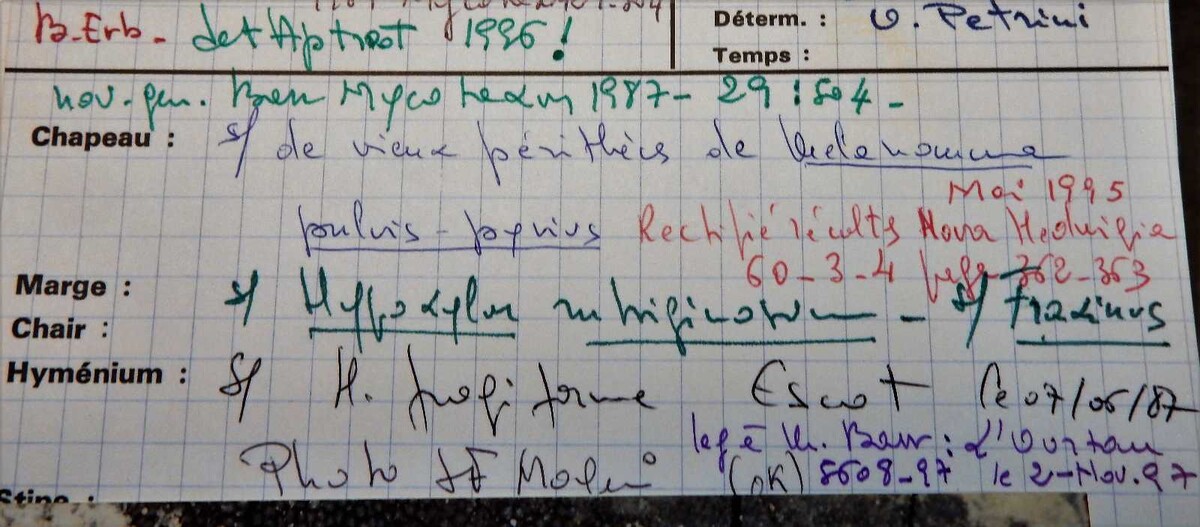 B. Erb. det Aptroot 1996!
Déterm. : O. Petrini
Temps :
nov. gen. Barr Mycotaxon 1987 - 29 : 504 -
Chapeau : s/ de vieux périthèces de Melanomma
pulvis-pyrius
Mai 1995
Rectifié récolts Nova Hedwigia
60-3-4 page 362-363
Marge :
s/ Hypoxylon rubiginosum - s/ Fraxinus
Chair :
Hyménium : s/ H. fragiforme Escot le 07/06/87
leg : L'Ourtau
Photo (OK) 5608-97 le 2-Nov. 97